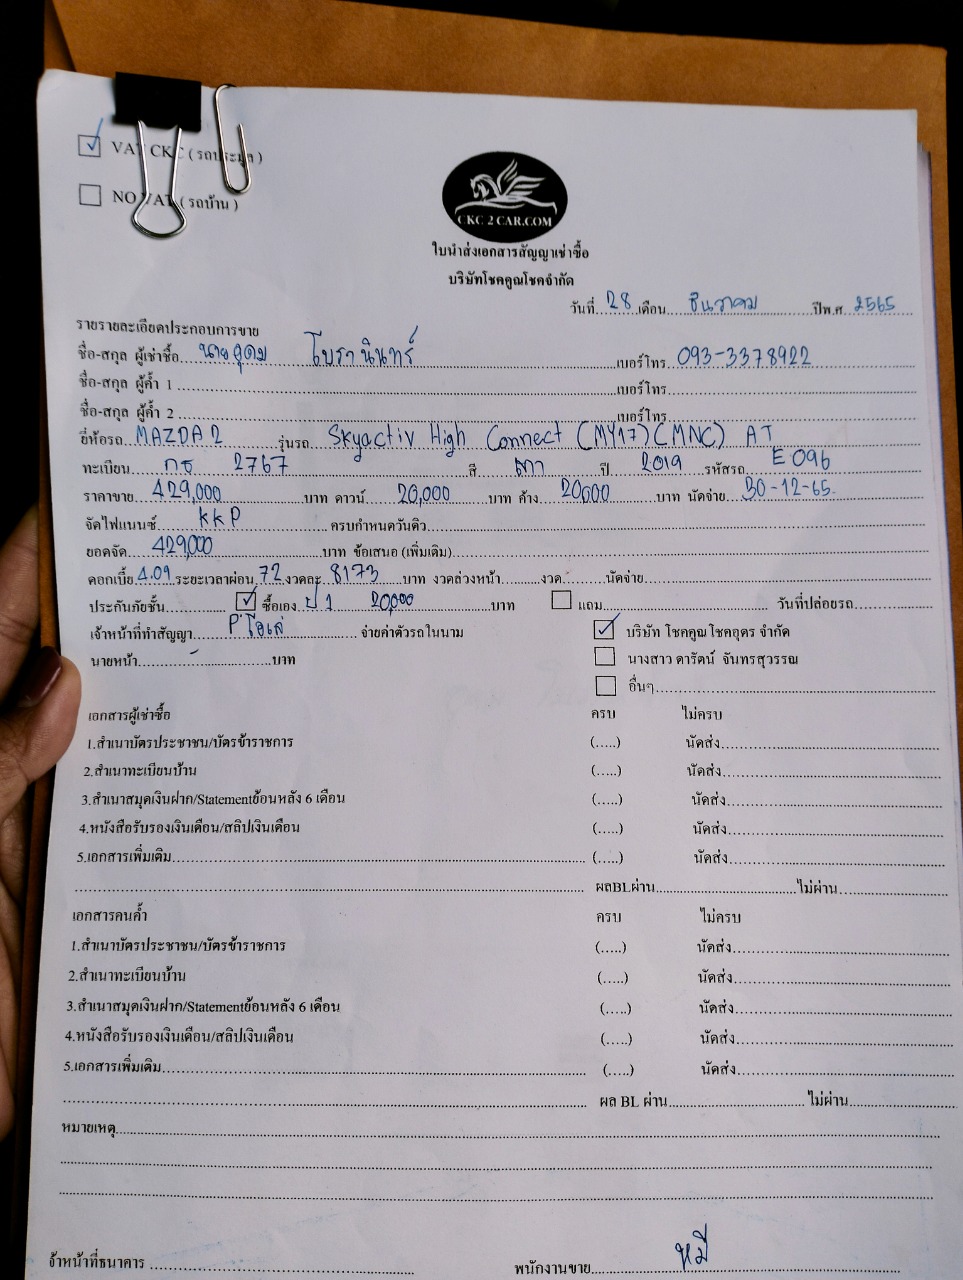 ☑ VAT CKC ( รถประมูล )
☐ NO VAT ( รถบ้าน )
CKC 2 CAR.COM
ใบนำส่งเอกสารสัญญาเช่าซื้อ
บริษัทโชคคูณโชคจำกัด
วันที่ 28 เดือน ธันวาคม ปีพ.ศ. 2565
รายรายละเอียดประกอบการขาย
ชื่อ-สกุล ผู้เช่าซื้อ นายอุดม โบรานินทร์ เบอร์โทร 093-3378922
ชื่อ-สกุล ผู้ค้ำ 1 เบอร์โทร
ชื่อ-สกุล ผู้ค้ำ 2 เบอร์โทร
ยี่ห้อรถ MAZDA 2 รุ่นรถ Skyactiv High Connect (MY17) (MNC) AT
ทะเบียน กธ 2767 สี เทา ปี 2019 รหัสรถ E096
ราคาขาย 429,000 บาท ดาวน์ 20,000 บาท ค้าง 20,000 บาท นัดจ่าย 30-12-65
จัดไฟแนนซ์ KKP ครบกำหนดวันดิว
ยอดจัด 429,000 บาท ข้อเสนอ (เพิ่มเติม)
ดอกเบี้ย 4.09 ระยะเวลาผ่อน 72 งวดละ 8173 บาท งวดล่วงหน้า งวด นัดจ่าย
ประกันภัยชั้น ☑ ซื้อเอง ป1 20,000 บาท ☐ แถม วันที่ปล่อยรถ
เจ้าหน้าที่ทำสัญญา P'โอเล่ จ่ายค่าตัวรถในนาม ☑ บริษัท โชคคูณโชคอุดร จำกัด
นายหน้า - บาท ☐ นางสาว ดารัตน์ จันทรสุวรรณ
☐ อื่นๆ
เอกสารผู้เช่าซื้อ ครบ ไม่ครบ
1.สำเนาบัตรประชาชน/บัตรข้าราชการ (.....) นัดส่ง
2.สำเนาทะเบียนบ้าน (.....) นัดส่ง
3.สำเนาสมุดเงินฝาก/Statementย้อนหลัง 6 เดือน (.....) นัดส่ง
4.หนังสือรับรองเงินเดือน/สลิปเงินเดือน (.....) นัดส่ง
5.เอกสารเพิ่มเติม (.....) นัดส่ง
ผลBLผ่าน ไม่ผ่าน
เอกสารคนค้ำ ครบ ไม่ครบ
1.สำเนาบัตรประชาชน/บัตรข้าราชการ (.....) นัดส่ง
2.สำเนาทะเบียนบ้าน (.....) นัดส่ง
3.สำเนาสมุดเงินฝาก/Statementย้อนหลัง 6 เดือน (.....) นัดส่ง
4.หนังสือรับรองเงินเดือน/สลิปเงินเดือน (.....) นัดส่ง
5.เอกสารเพิ่มเติม (.....) นัดส่ง
ผล BL ผ่าน ไม่ผ่าน
หมายเหตุ
จ้าหน้าที่ธนาคาร พนักงานขาย หมี